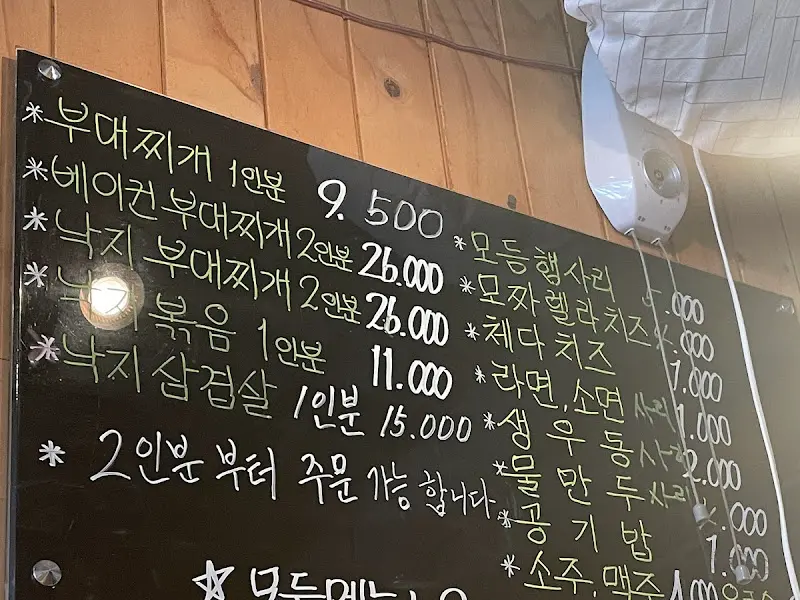 *부대찌개 1인분 9.500
*베이컨 부대찌개 2인분 26.000
*낙지 부대찌개 2인분 26.000
*낙지 볶음 1인분 11.000
*낙지 삼겹살 1인분 15.000
* 2인분 부터 주문 가능 합니다
*모듬햄사리 5.000
*모짜렐라치즈 .000
*체다 치즈 1.000
*라면,소면 사리 1.000
*생 우 동 사리 2.000
*물 만 두 사리 .000
*공 기 밥 1.000
*소주,맥주